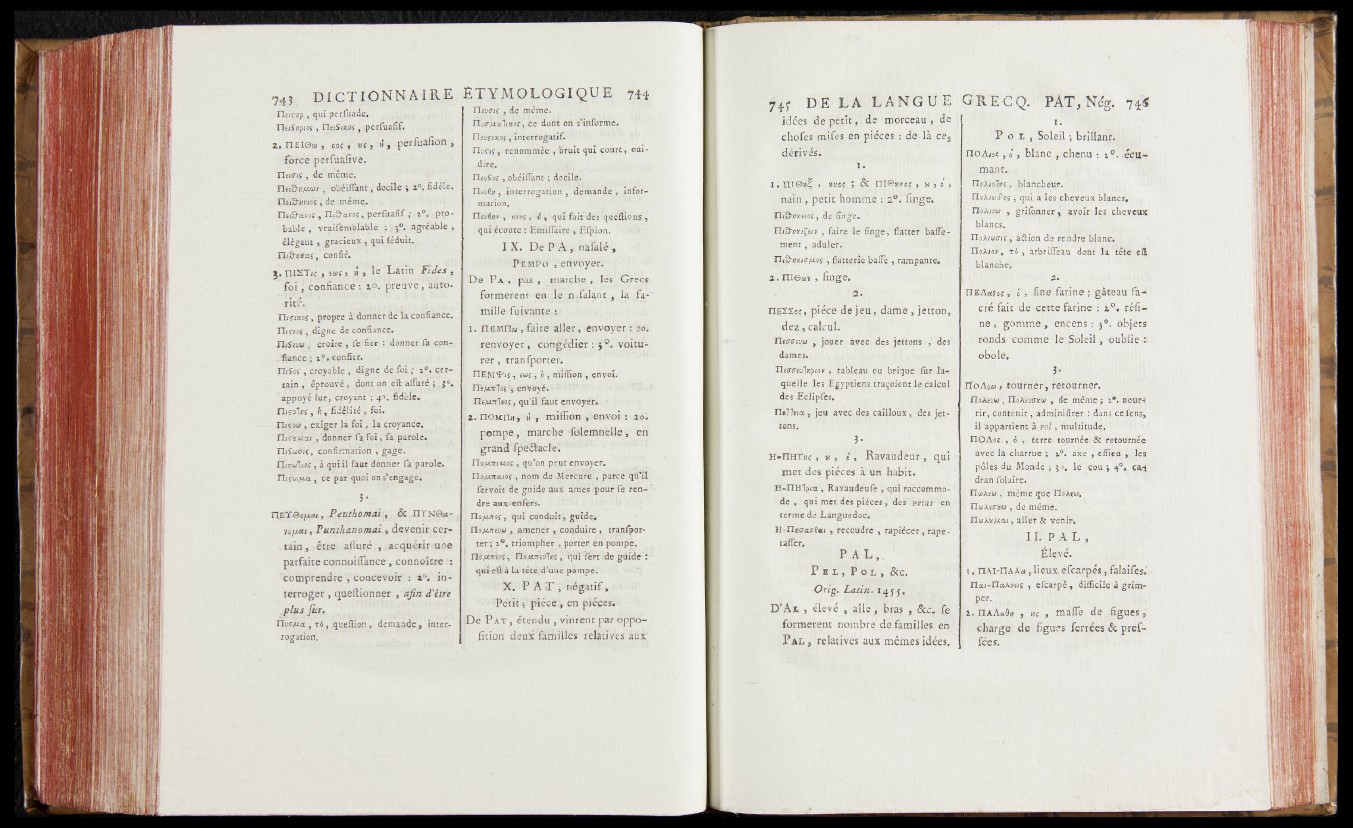 743 DICTIONNAIRE ÉTYMOLOGIQUE 744
Πειϛηρ, qui perſuade.
Πειϛηριος, Πειϛικος, perſuaſif.
2. ΠΕΙΘω, οος, ως, ἡ, perſuaſion,
force perſuaſive.
Πεισις, de même.
Πειθημων, obéiſſant, docile ; 2°. fidéle.
Πειθηνιος, de même.
Πειθανος, Πιθανος, perſuaſif ; 2°. pro-
bable, vraiſemblable : 3°. agréable,
élégant, gracieux, qui ſéduit.
confié.
3. ΠΙΣΤις, εως, ἡ, le Latin Fides,
foi, confiance : 2o. preuve, auto-
rité.
Πιϛικος, propre à donner de la confiance.
Πιϛιος, digne de confiance.
Πιϛευω, croire, ſe fier : donner ſa con-
fiance ; 2°. confier.
Πιϛος, croyable, digne de foi ; 2°. cer-
tain, éprouvé, dont on eſt aſſuré ; 3°.
appuyé ſur, croyant ; 4°. fidéle.
Πιϛοτης, ἡ, fidélité, foi.
Πιϛοω, exiger la foi, la croyance.
Πιϛεμαι, donner ſa foi, ſa parole.
Πιϛωσις, confirmation, gage.
Πιϛωτεος, à qui il faut donner ſa parole.
Πιϛωμα, ce par quoi on s'engage.
3.
ΠΕΥΘομαι, Peuthomai, & ΠΥΝΘα-
νομαι, Punthanomai, devenir cer-
tain, être aſſuré, acquérir une
parfaite connoiſſance, connoître :
comprendre, concevoir : 2°. in-
terroger, queſtionner, afin d'être
plus ſur.
Πυσμα, τὸ, queſtion, demande, inter-
rogation.
Πευσις, de même.
Πυσματικος, ce dont on s'informe.
Πευϛικος, interrogatif.
Πυϛις, renommée, bruit qui court, oui-
dire.
Πευϛος, obéiſſant ; docile.
Πευθω, interrogation, demande, infor-
mation.
Πευθην, ηνος, ὁ, qui fait des queſtions,
qui écoute : Emiſſaire, Eſpion.
IX. De PA, naſalé,
PEMPO, envoyer.
De PA, pas, marche, les Grecs
formerent en le naſalant, la fa-
mille ſuivante :
1. ΠΕΜΠω, faire aller, envoyer : 2o.
renvoyer, congédier : 3°. voitu-
rer, tranſporter.
ΠΕΜΨις, εως, ἡ, miſſion, envoi.
Πεμπτος, envoyé.
Πεμπτεος, qu'il faut envoyer.
2. ΠΟΜΠη, ἡ, miſſion, envoi : 2o.
pompe, marche ſolemnelle, en
grand ſpectacle.
Πομπιμος, qu'on peut envoyer.
Πομπαιος, nom de Mercure, parce qu'il
ſervoit de guide aux ames pour ſe ren-
dre aux enfers.
Πομπος, qui conduit, guide.
Πομπευω, amener, conduire, tranſpor-
ter ; 2°. triompher, porter en pompe.
Πομπευς, Πομπευτης, qui ſert de guide :
qui eſt à la tête d'une pompe.
X. PAT, négatif,
Petit ; piéce, en piéces.
De PAT, étendu, vinrent par oppo-
ſition deux familles relatives aux
745 DE LA LANGUE GRECQ. PAT, Nég. 746
idées de petit, de morceau, de
choſes miſes en piéces : de là ces
dérivés.
1.
1. ΠΙΘηξ, ηκος ; & ΠΙΘηκος, ου, ὁ,
nain, petit homme : 2°. ſinge.
Πιθηκειος, de ſinge.
Πιθηκιζειν, faire le ſinge, flatter baſſe-
ment, aduler.
Πιθηκισμος, flatterie baſſe, rampante.
2. ΠΙΘων, ſinge.
2.
ΠΕΣΣος, piéce de jeu, dame, jetton,
dez, calcul.
Πεσσευω, jouer avec des jettons, des
dames.
Πεσσευτηριον, tableau ou brique ſur la-
quelle les Egyptiens traçoient le calcul
des Eclipſes.
Πεττεια, jeu avec des cailloux, des jet-
tons.
3.
Η-ΠΗΤης, ου, ὁ, Ravaudeur, qui
met des piéces à un habit.
Η-ΠΗΤρια, Ravaudeuſe, qui raccommo-
de, qui met des piéces, des petas en
terme de Languedoc.
Η-Πησασθαι, recoudre, rapiécer, rape-
taſſer.
PAL,
PEL, POL, &c.
Orig. Latin. 1455.
D'AL, élevé, aîle, bras, &c. ſe
formerent nombre de familles en
PAL, relatives aux mêmes idées.
1.
POL, Soleil ; brillant.
ΠΟΛιος, ὁ, blanc, chenu : 2°. écu-
mant.
Πολιοτης, blancheur.
qui a les cheveux blancs.
Πολιοω, griſonner, avoir les cheveux
blancs.
Πολιωσις, action de rendre blanc.
Πολιον, τὸ, arbriſſeau dont la tête eſt
blanche.
2.
ΠΕΛανος, ὁ, fine farine ; gâteau ſa-
cré fait de cette farine : 2°. réſi-
ne, gomme, encens : 3°. objets
ronds comme le Soleil, oublie :
obole.
3.
ΠΟΛεω, tourner, retourner.
Πολευω, Πολευσκω, de même ; 2°. nour-
rir, contenir, adminiſtrer : dans ce ſens,
il appartient à pol, multitude.
ΠΟΛος, ὁ, terre tournée & retournée
avec la charrue ; 2°. axe, eſſieu, les
pôles du Monde ; 3°. le cou ; 4°. ca-
dran ſolaire.
Πωλεω, même que Πολεω.
Πωλεσκω, de même.
Πωλυμαι, aller & venir.
II. PAL,
Élevé.
1. ΠΑΙ-ΠΑΛα, lieux eſcarpés, falaiſes.
Παι-Παλοεις, eſcarpé, difficile à grim-
per.
2. ΠΑΛαθη, ης, maſſe de figues,
charge de figues ſerrées & preſ-
ſées.